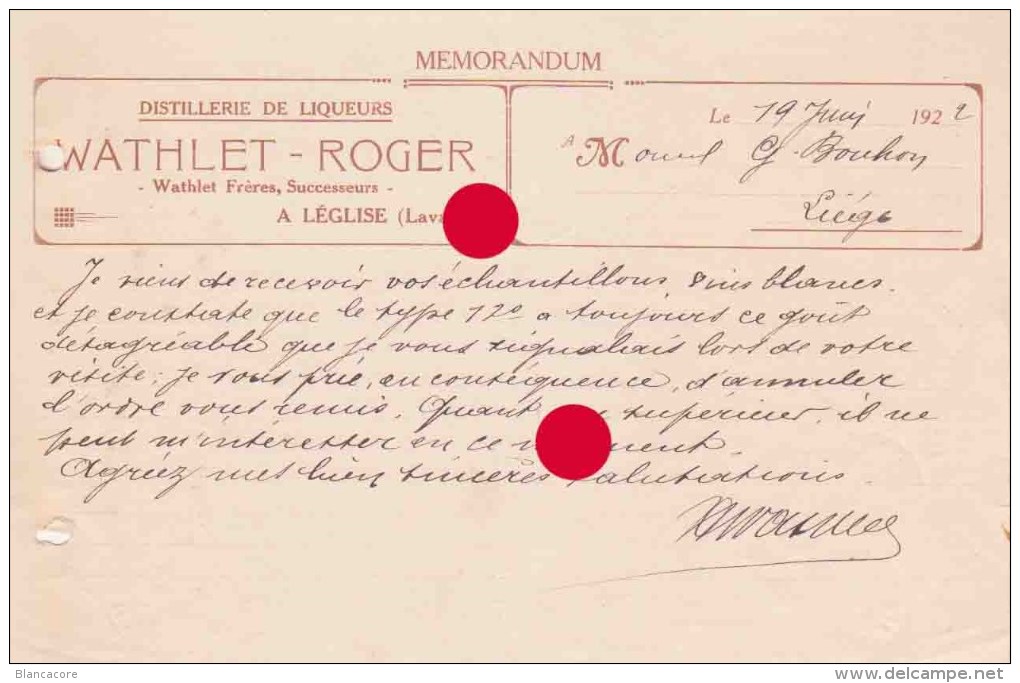 MEMORANDUM
DISTILLERIE DE LIQUEURS
WATHLET - ROGER
- Wathlet Frères, Successeurs -
A LÉGLISE (Lava
Le 19 Juin 1922
A M G. Bouhon
Liége
Je viens de recevoir vos échantillons vins blancs
et je constate que le type 12° a toujours ce goût
désagréable que je vous signalais lors de votre
visite; je vous prie, en conséquence, d'annuler
l'ordre vous remis. Quant supérieur, il ne
peut m'intéresser en ce moment.
Agréez mes bien sincères salutations.
Blancacore
www.delcampe.net